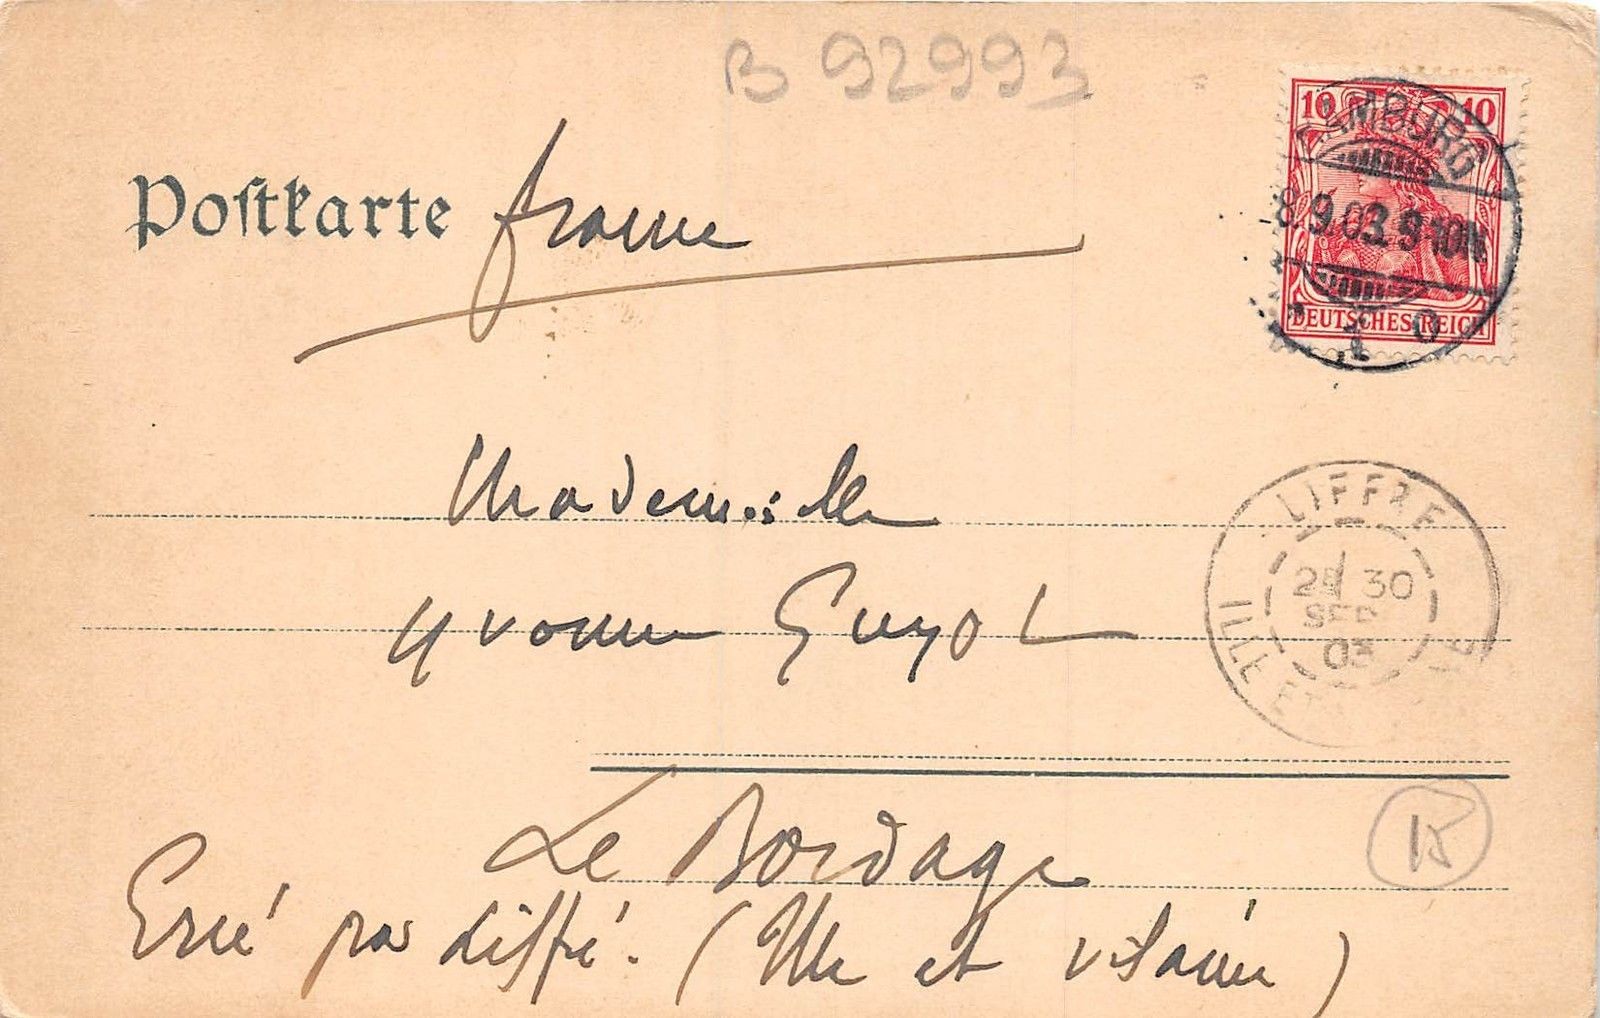 B 92993
Poſtkarte france
10 10
HAMBURG
8.9.03. 9-10N
DEUTSCHES REICH
1 O
Mademoiselle
Yvonne Guyot
LIFFRE
30
SEP
03
ILLE ET
Le Bordage
Ercé par Liffré. (Ille et Vilaine)
15